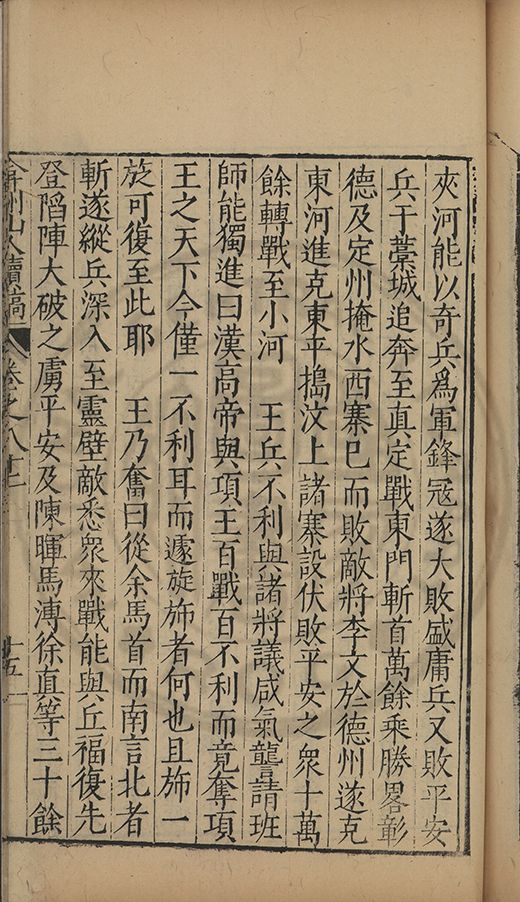 夾河能以奇兵爲軍鋒冠遂大敗盛庸兵又敗平安
兵于藁城追奔至真定戰東門斬首萬餘乘勝畧彰
德及定州掩水西寨巳而敗敵將李文於德州遂克
東河進克東平搗汶上諸寨設伏敗平安之衆十萬
餘轉戰至小河　王兵不利與諸將議咸氣讋請班
師能獨進曰漢高帝與項王百戰百不利而竟奪項
王之天下今僅一不利耳而遽旋斾者何也且斾一
旋可復至此耶　王乃奮曰從余馬首而南言北者
斬遂縱兵深入至靈壁敵悉衆來戰能與丘福復先
登陷陣大破之虜平安及陳暉馬溥徐直等三十餘
弇州山人續稿　卷之八十二　十五